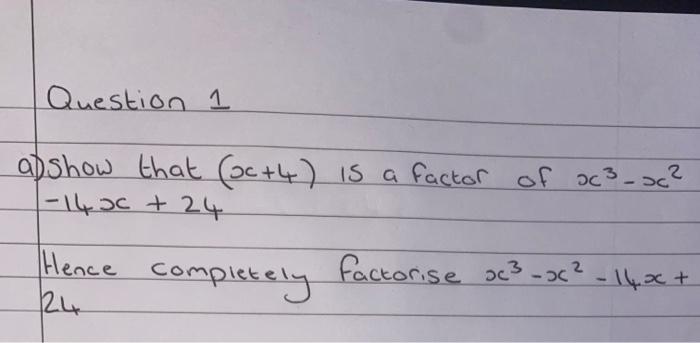 Question 1
a) Show that (x+4) is a factor of x³-x²
-14x + 24
Hence completely factorise x³-x²-14x+
24